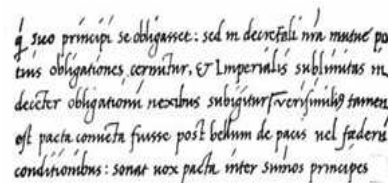 q̃ suo principi se obligasset: sed in decretali nr̃a mutuę po
tius obligationes cernũtur, & Imperialis sublimitas in
decẽter obligationũ nexibus subigitur, verisimiliꝰ tamen
est pacta conuẽta fuisse post bellum de pacis uel fœderũ
conditionibus: sonat uox pacta inter sũmos principes